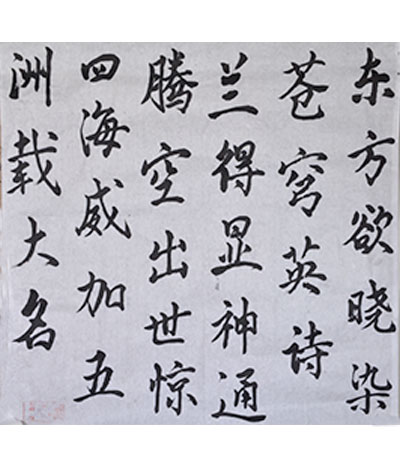 东方欲晓染
苍穹英诗
兰得显神通
腾空出世惊
四海威加五
洲载大名